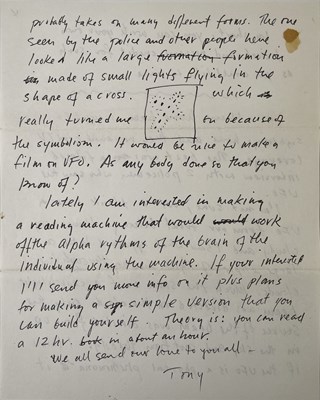 probally takes on many different forms. The one
seen by the police and other people here
looked like a large formation formation
made of small lights flying In the
shape of a cross. which
really turned me on because of
the symbolism. It would be nice to make a
film on UFO. As any body done so that you
know of?
lately I am interested in making
a reading machine that would would work
off the Alpha rythms of the brain of the
Individual using the machine. If your interested
I'll send you more info on it plus plans
for making a simple version that you
can build yourself. Theory is: you can read
a 12 hr. book in about an hour.
We all send our love to you all -
Tony